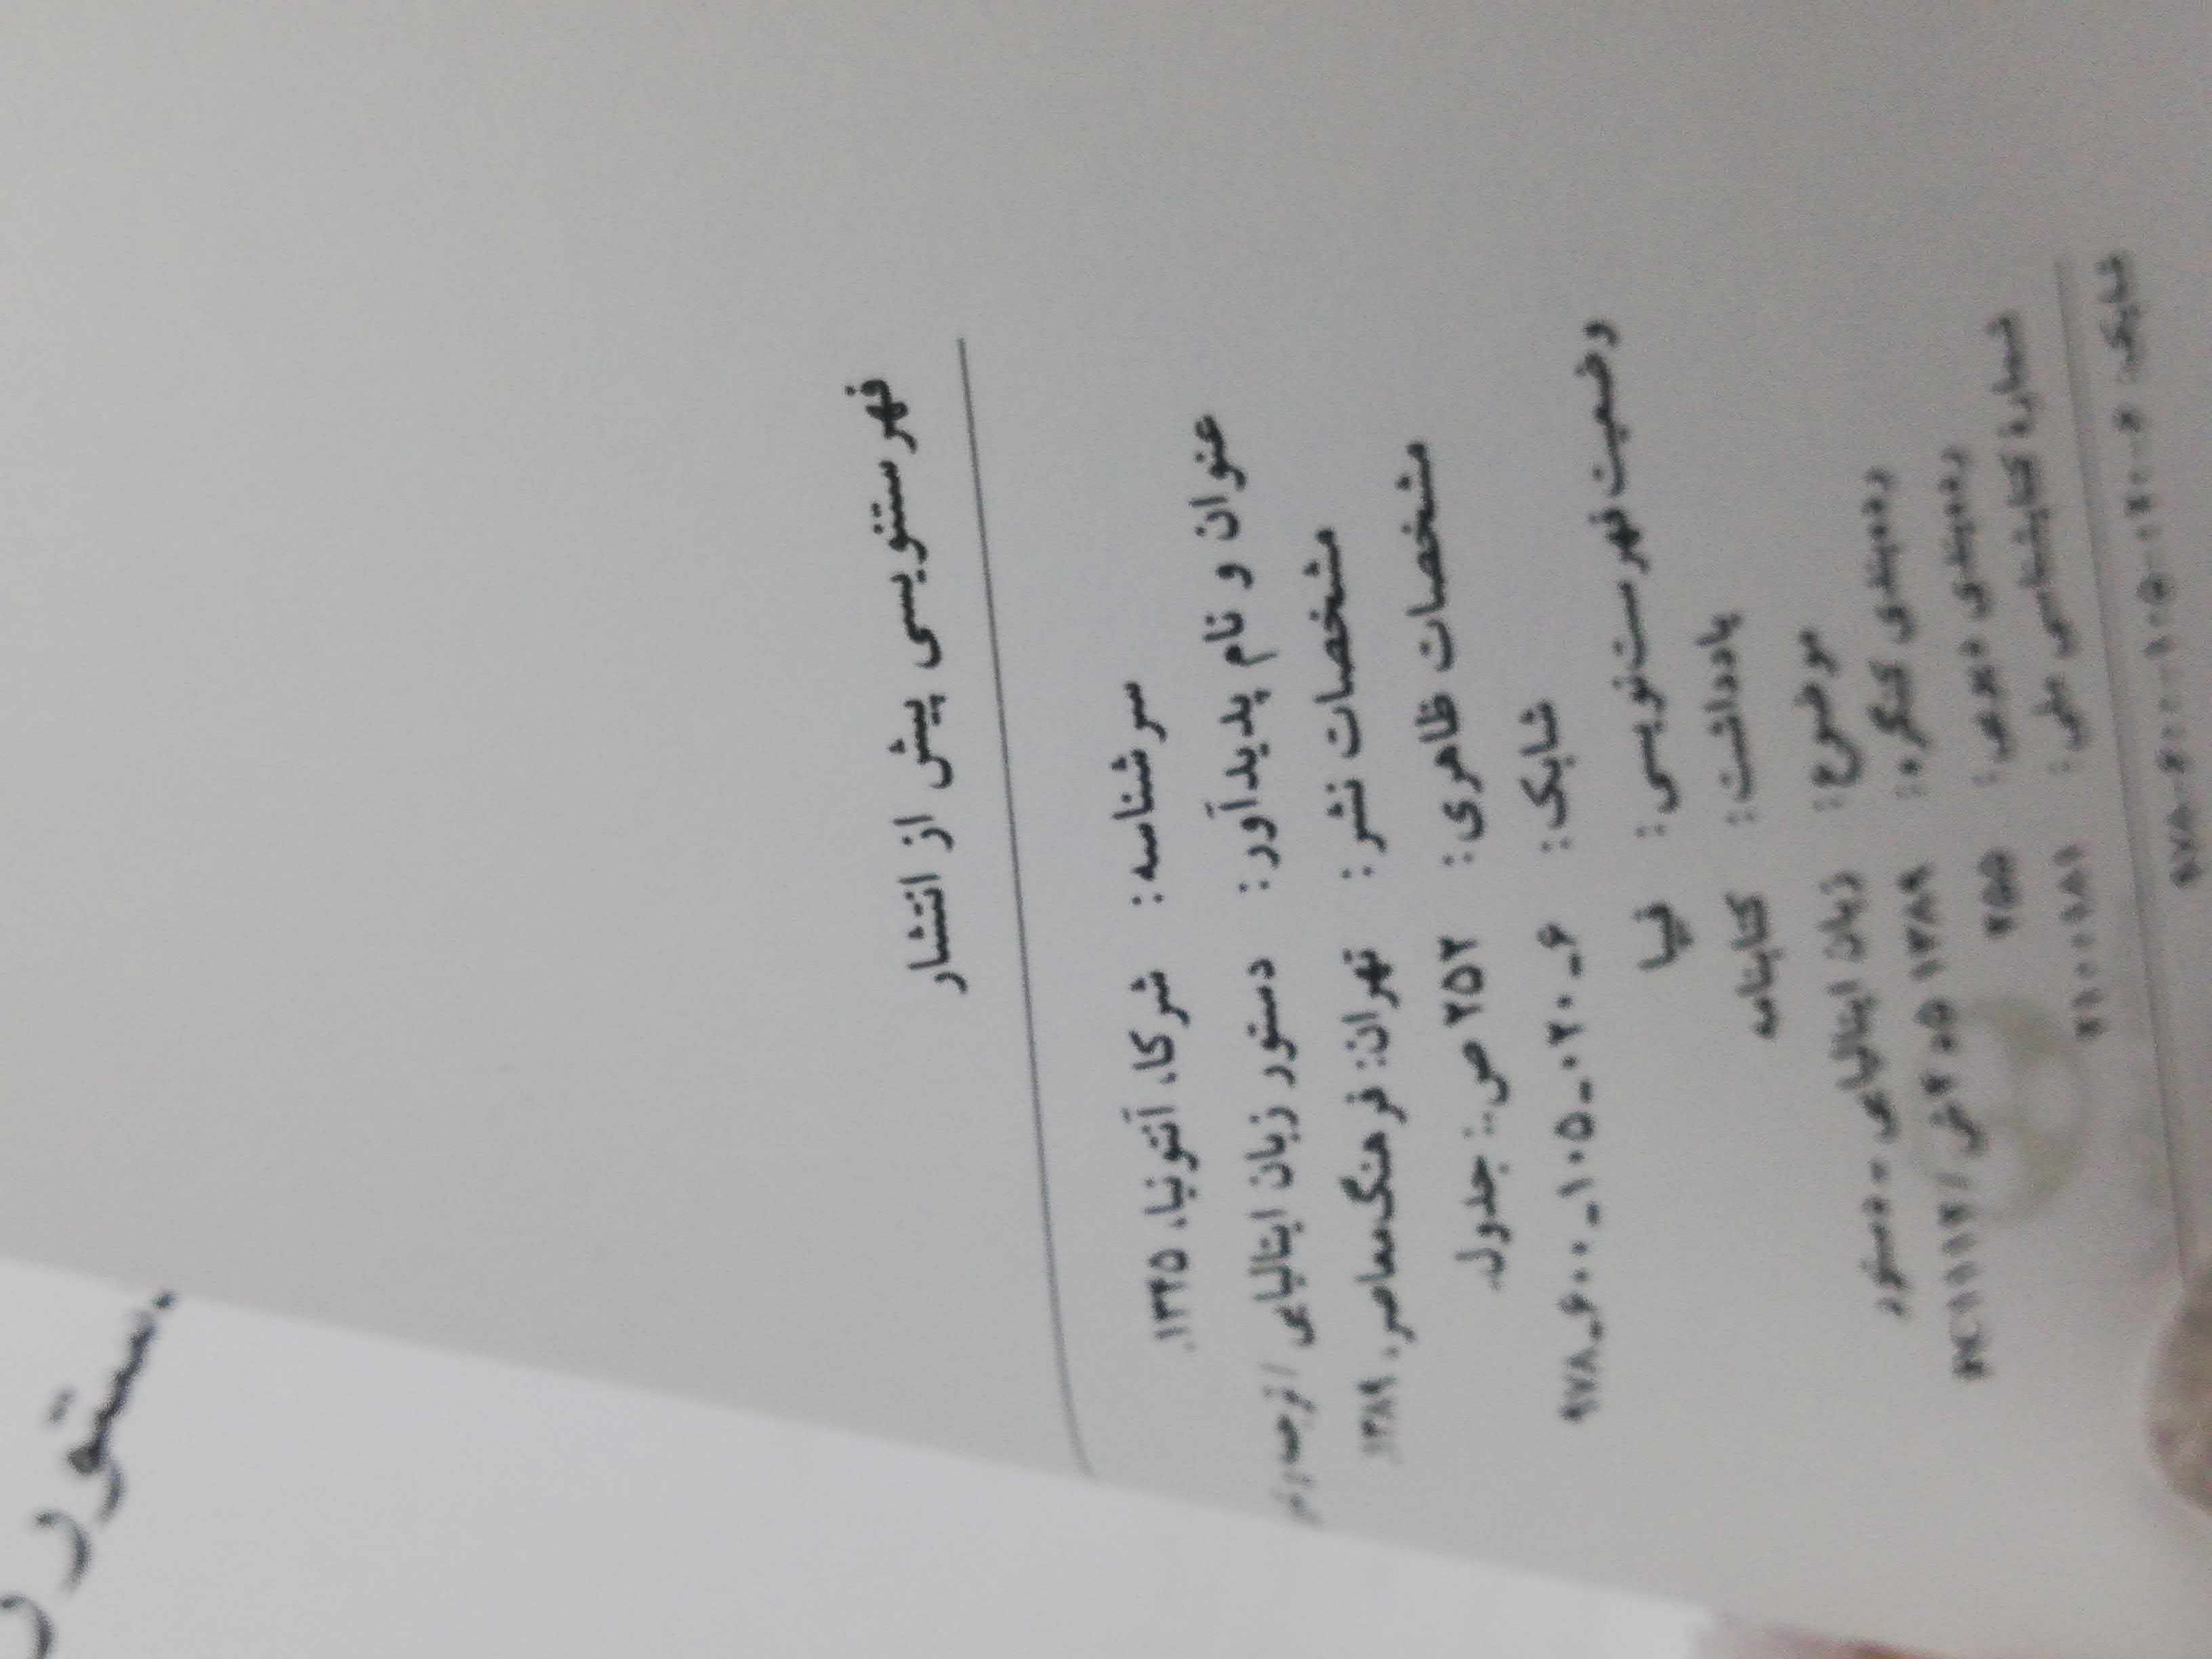 فهرستنویسی پیش از انتشار
سرشناسه: شرکا، آنتونیا، ۱۳۴۵.
عنوان و نام پدیدآور: دستور زبان ایتالیایی / ترجمه و
مشخصات نشر: تهران: فرهنگ‌معاصر، ۱۳۸۹.
مشخصات ظاهری: ۲۵۲ ص.: جدول.
شابک: ۹۷۸-۶۰۰-۱۰۵-۰۲۰-۶
وضعیت فهرست‌نویسی: فیپا
یادداشت: کتابنامه
موضوع: زبان ایتالیایی - دستور
رده‌بندی کنگره: ۱۳۸۹ ۵د ۴ش/
رده‌بندی دیویی: ۴۵۵
شمارهٔ کتابشناسی ملی:
شابک: ۶-۰۲۰-۱۰۵-۶۰۰-۹۷۸
ستور